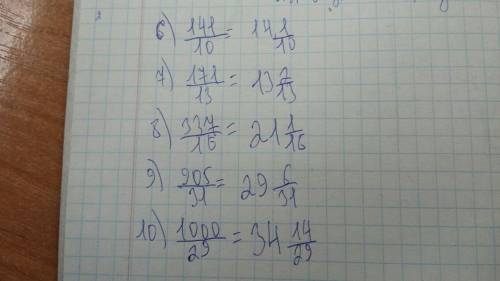 6) 141/10 = 14 1/10
7) 171/13 = 13 2/13
8) 337/16 = 21 1/16
9) 905/31 = 29 6/31
10) 1000/29 = 34 14/29